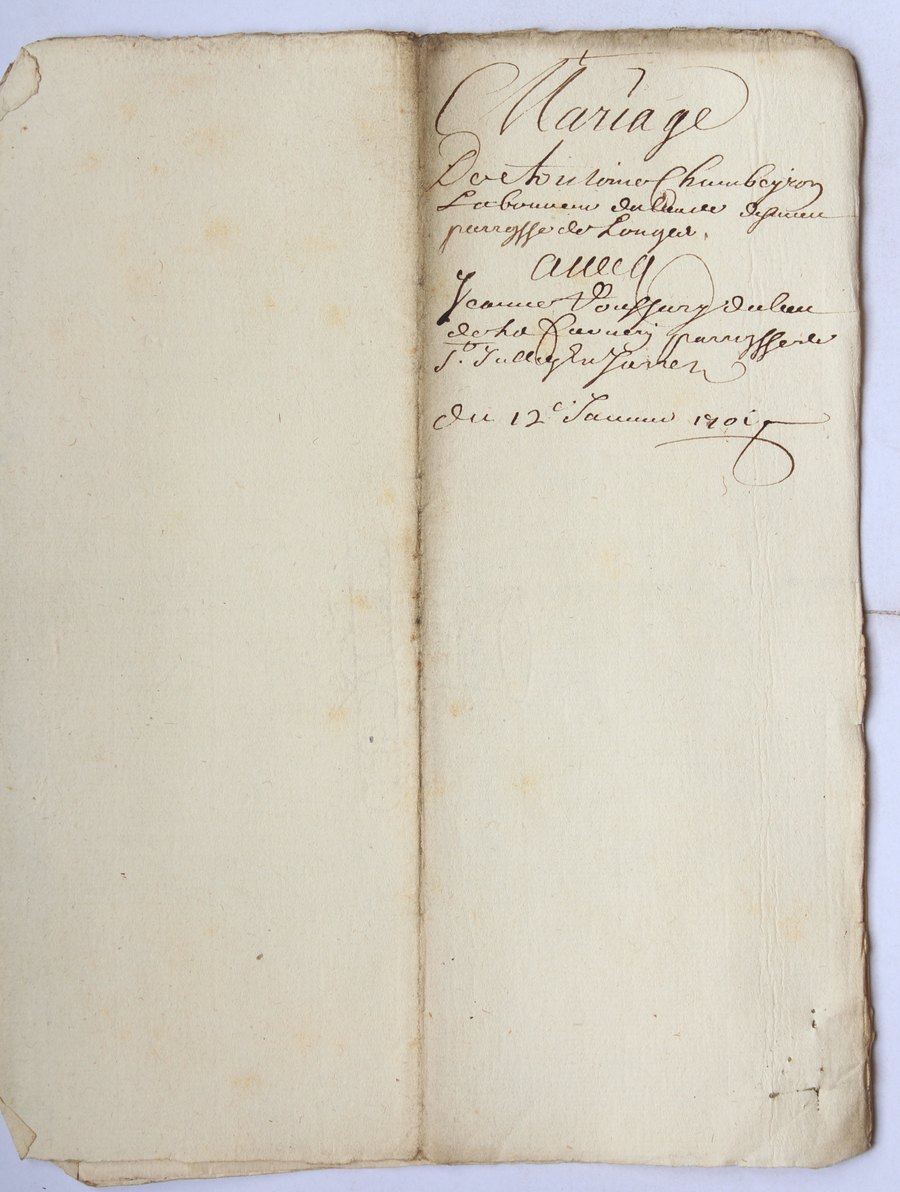 Mariage
De Antoine Chambeyron
Laboureur du
parroisse de Longes.
avecq
Jeanne du lieu
de la parroisse de
St. Jullien En Jarrest
du 12e Janvier 1701